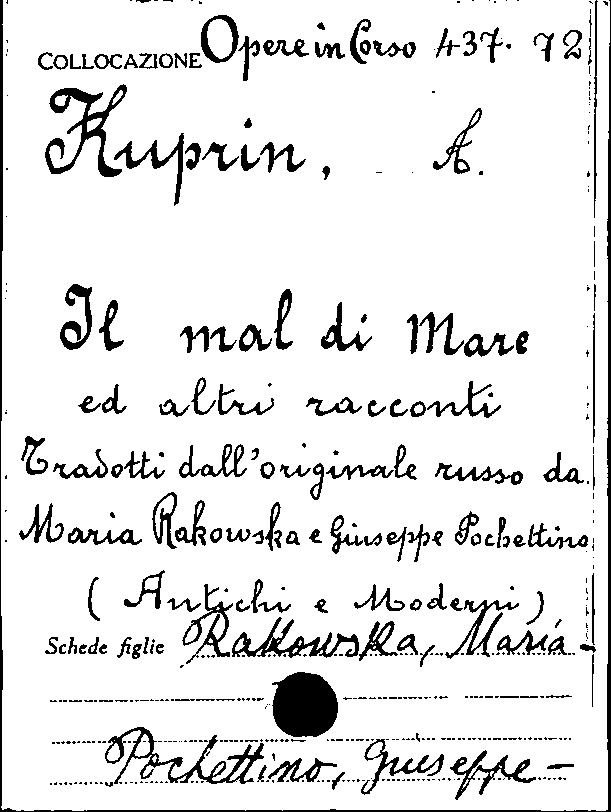 COLLOCAZIONE Opere in Corso 437. 72
Kuprin, A.
Il mal di Mare
ed altri racconti
Tradotti dall'originale russo da
Maria Rakowska e Giuseppe Pochettino
( Antichi e Moderni )
Schede figlie Rakowska, Maria -
Pochettino, Giuseppe -